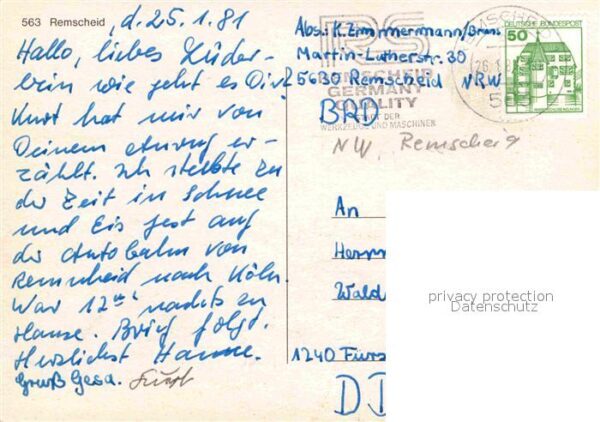 563 Remscheid, d. 25.1.81
Hallo, liebes Brüder-
lein wie geht es Dir?
Kurt hat mir von
Deinem Anruf er-
zählt. Ich steckte zu
der Zeit in Schnee
und Eis fest auf
der Autobahn von
Remscheid nach Köln
War 12 nachts zu
Hause. Brief folgt.
Herzlichst Hanne.
Gruß Gesa.
Abs. K. Zimmermann/Bruns
Martin-Lutherstr. 30
5630 Remscheid NRW
BRD
NW, Remscheid
RS
REMSCHEID
GERMANY
QUALITY
STADT DER
WERKZEUGE UND MASCHINEN
REMSCHEID
26.1.
DEUTSCHE BUNDESPOST
50
An
Herrn
Wald
1240 Fürs
privacy protection
Datenschutz